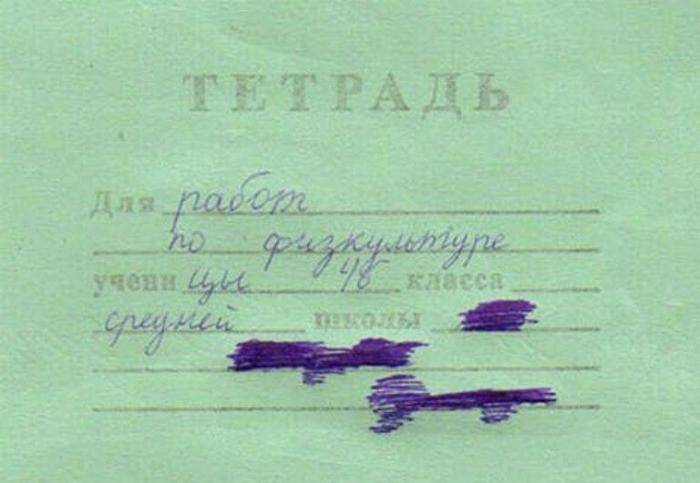 ТЕТРАДЬ
Для работ
по физкультуре
учени цы 4б класса
средней школы